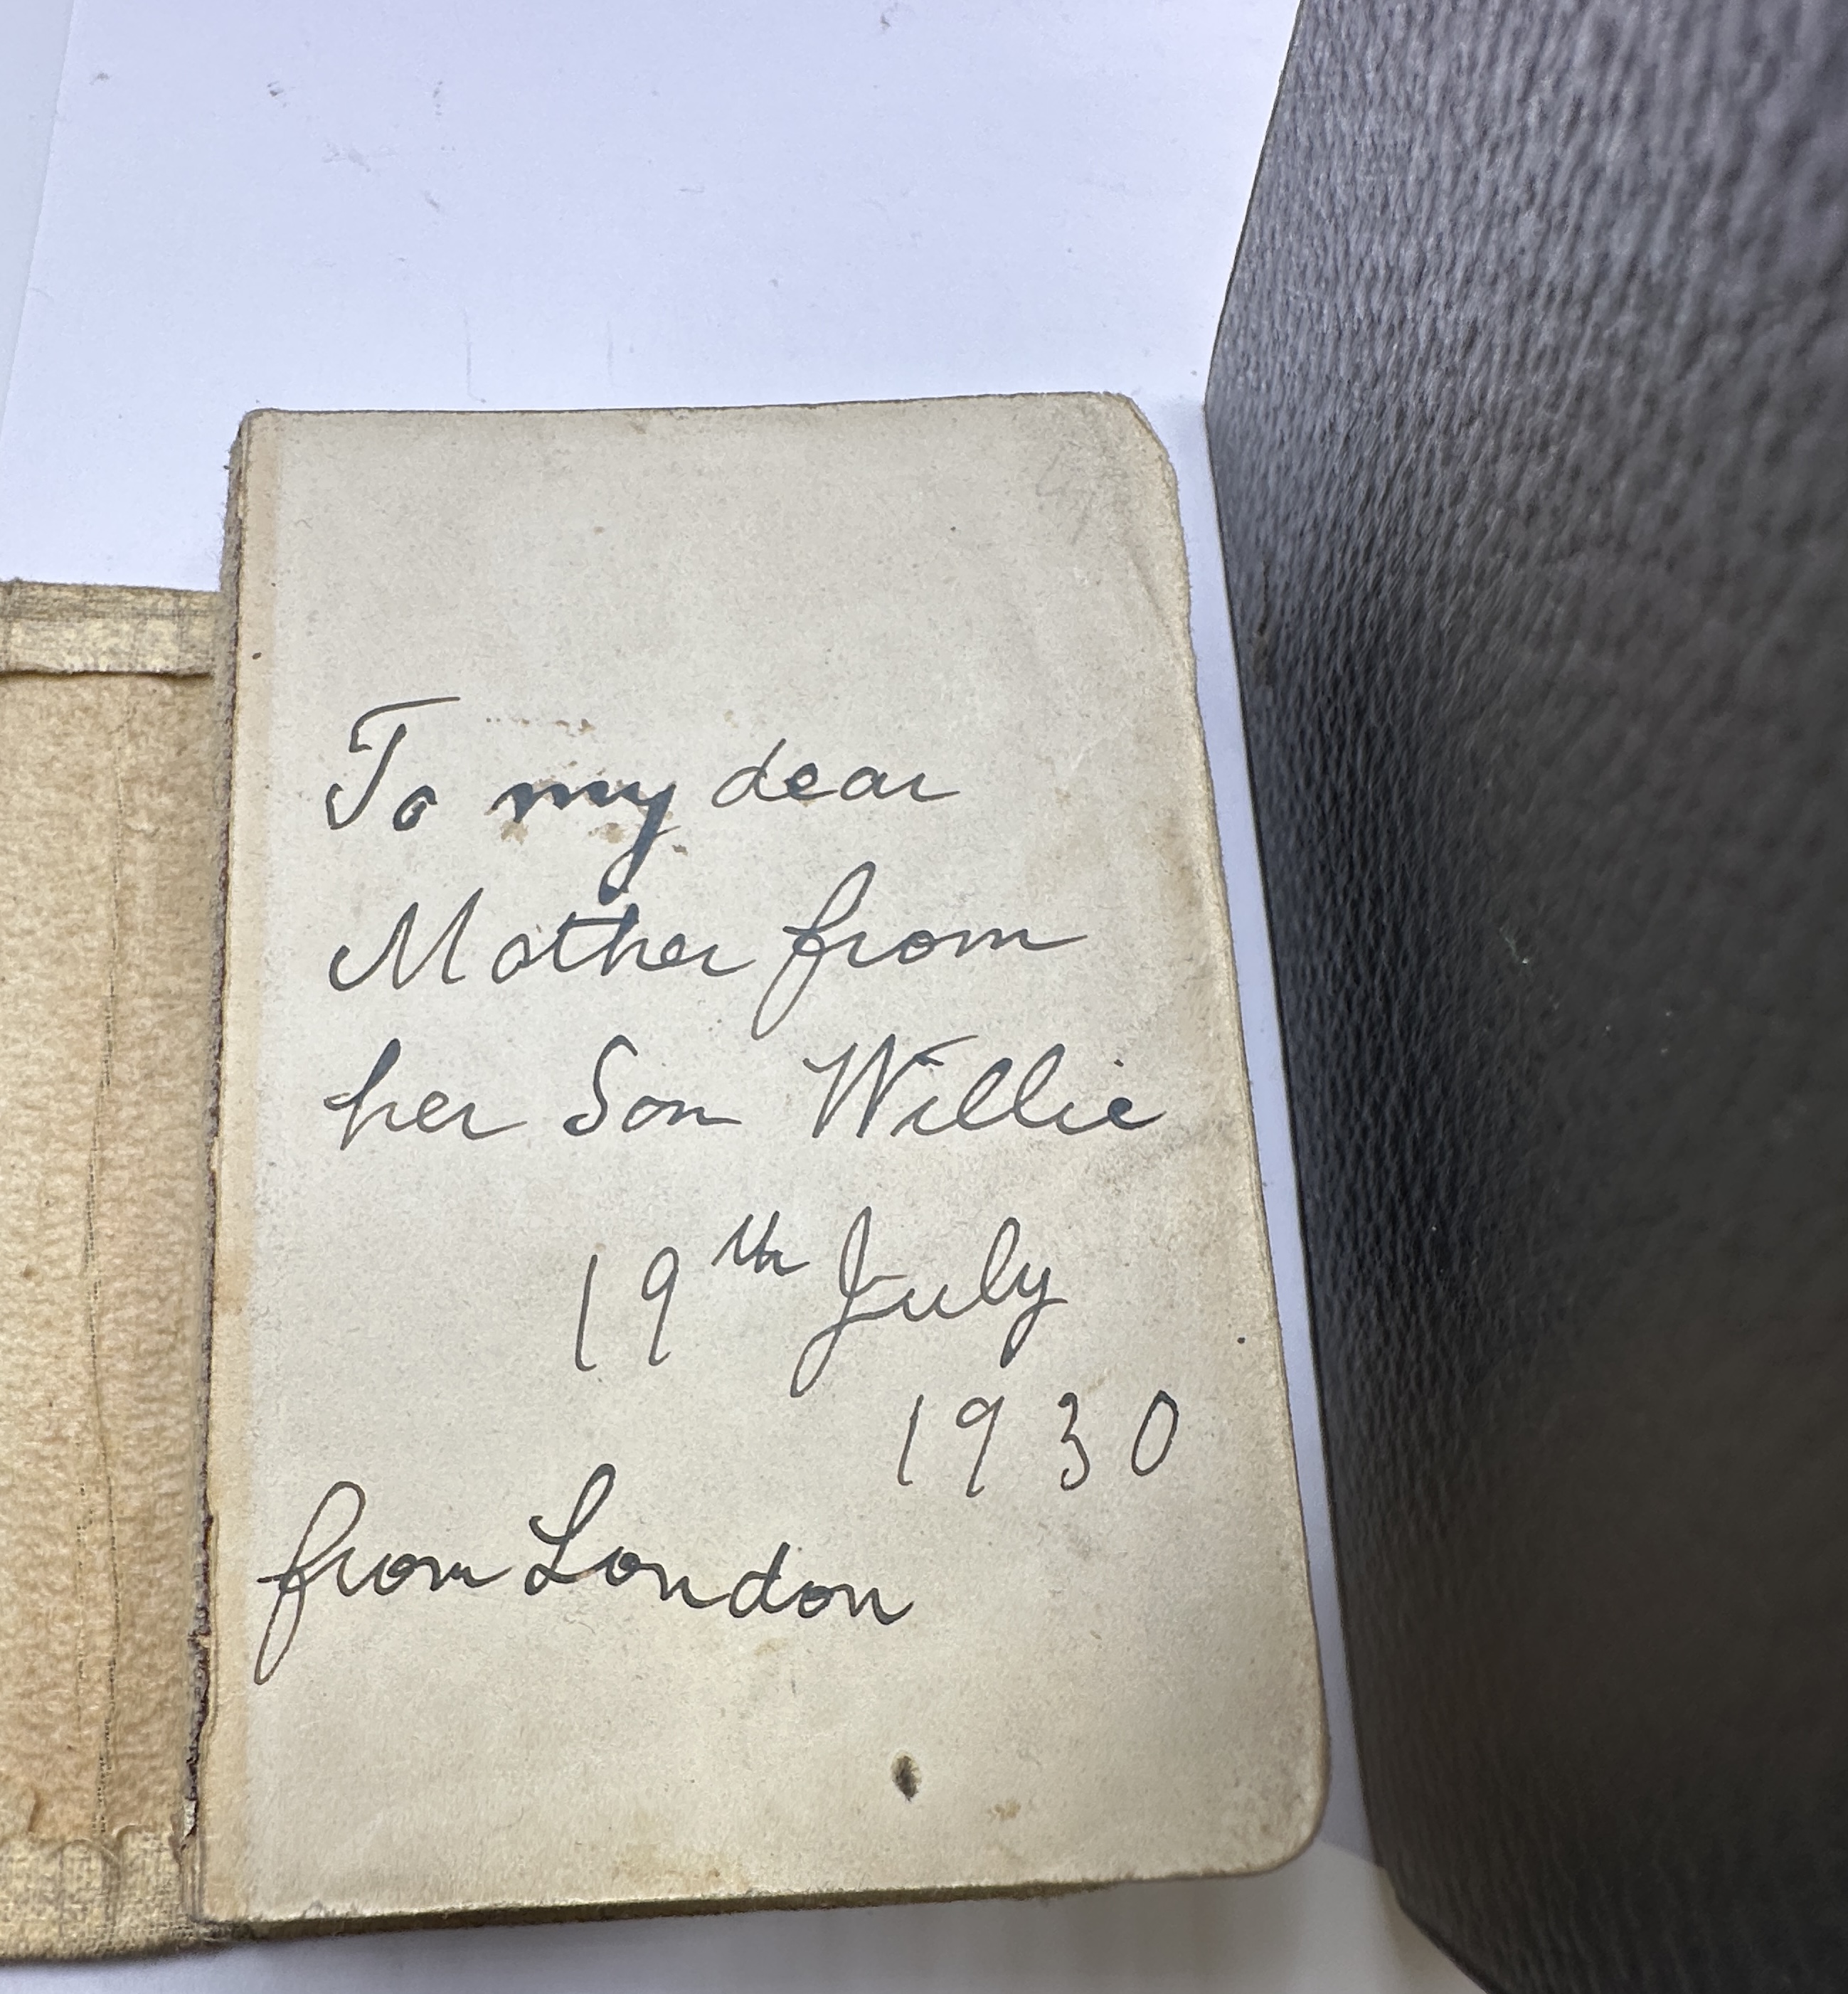 To my dear
Mother from
her Son Willie
19th July
1930
from London